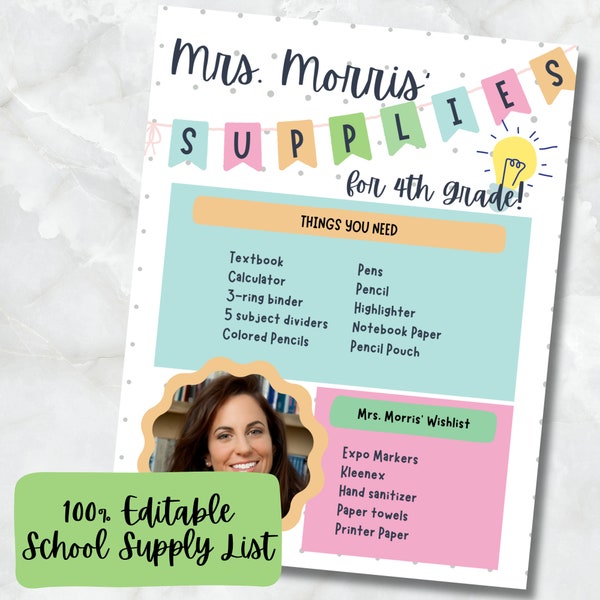 Mrs. Morris'
SUPPLIES
for 4th Grade!
THINGS YOU NEED
Textbook
Calculator
3-ring binder
5 subject dividers
Colored Pencils
Pens
Pencil
Highlighter
Notebook Paper
Pencil Pouch
Mrs. Morris' Wishlist
Expo Markers
Kleenex
Hand sanitizer
Paper towels
Printer Paper
100% Editable
School Supply List